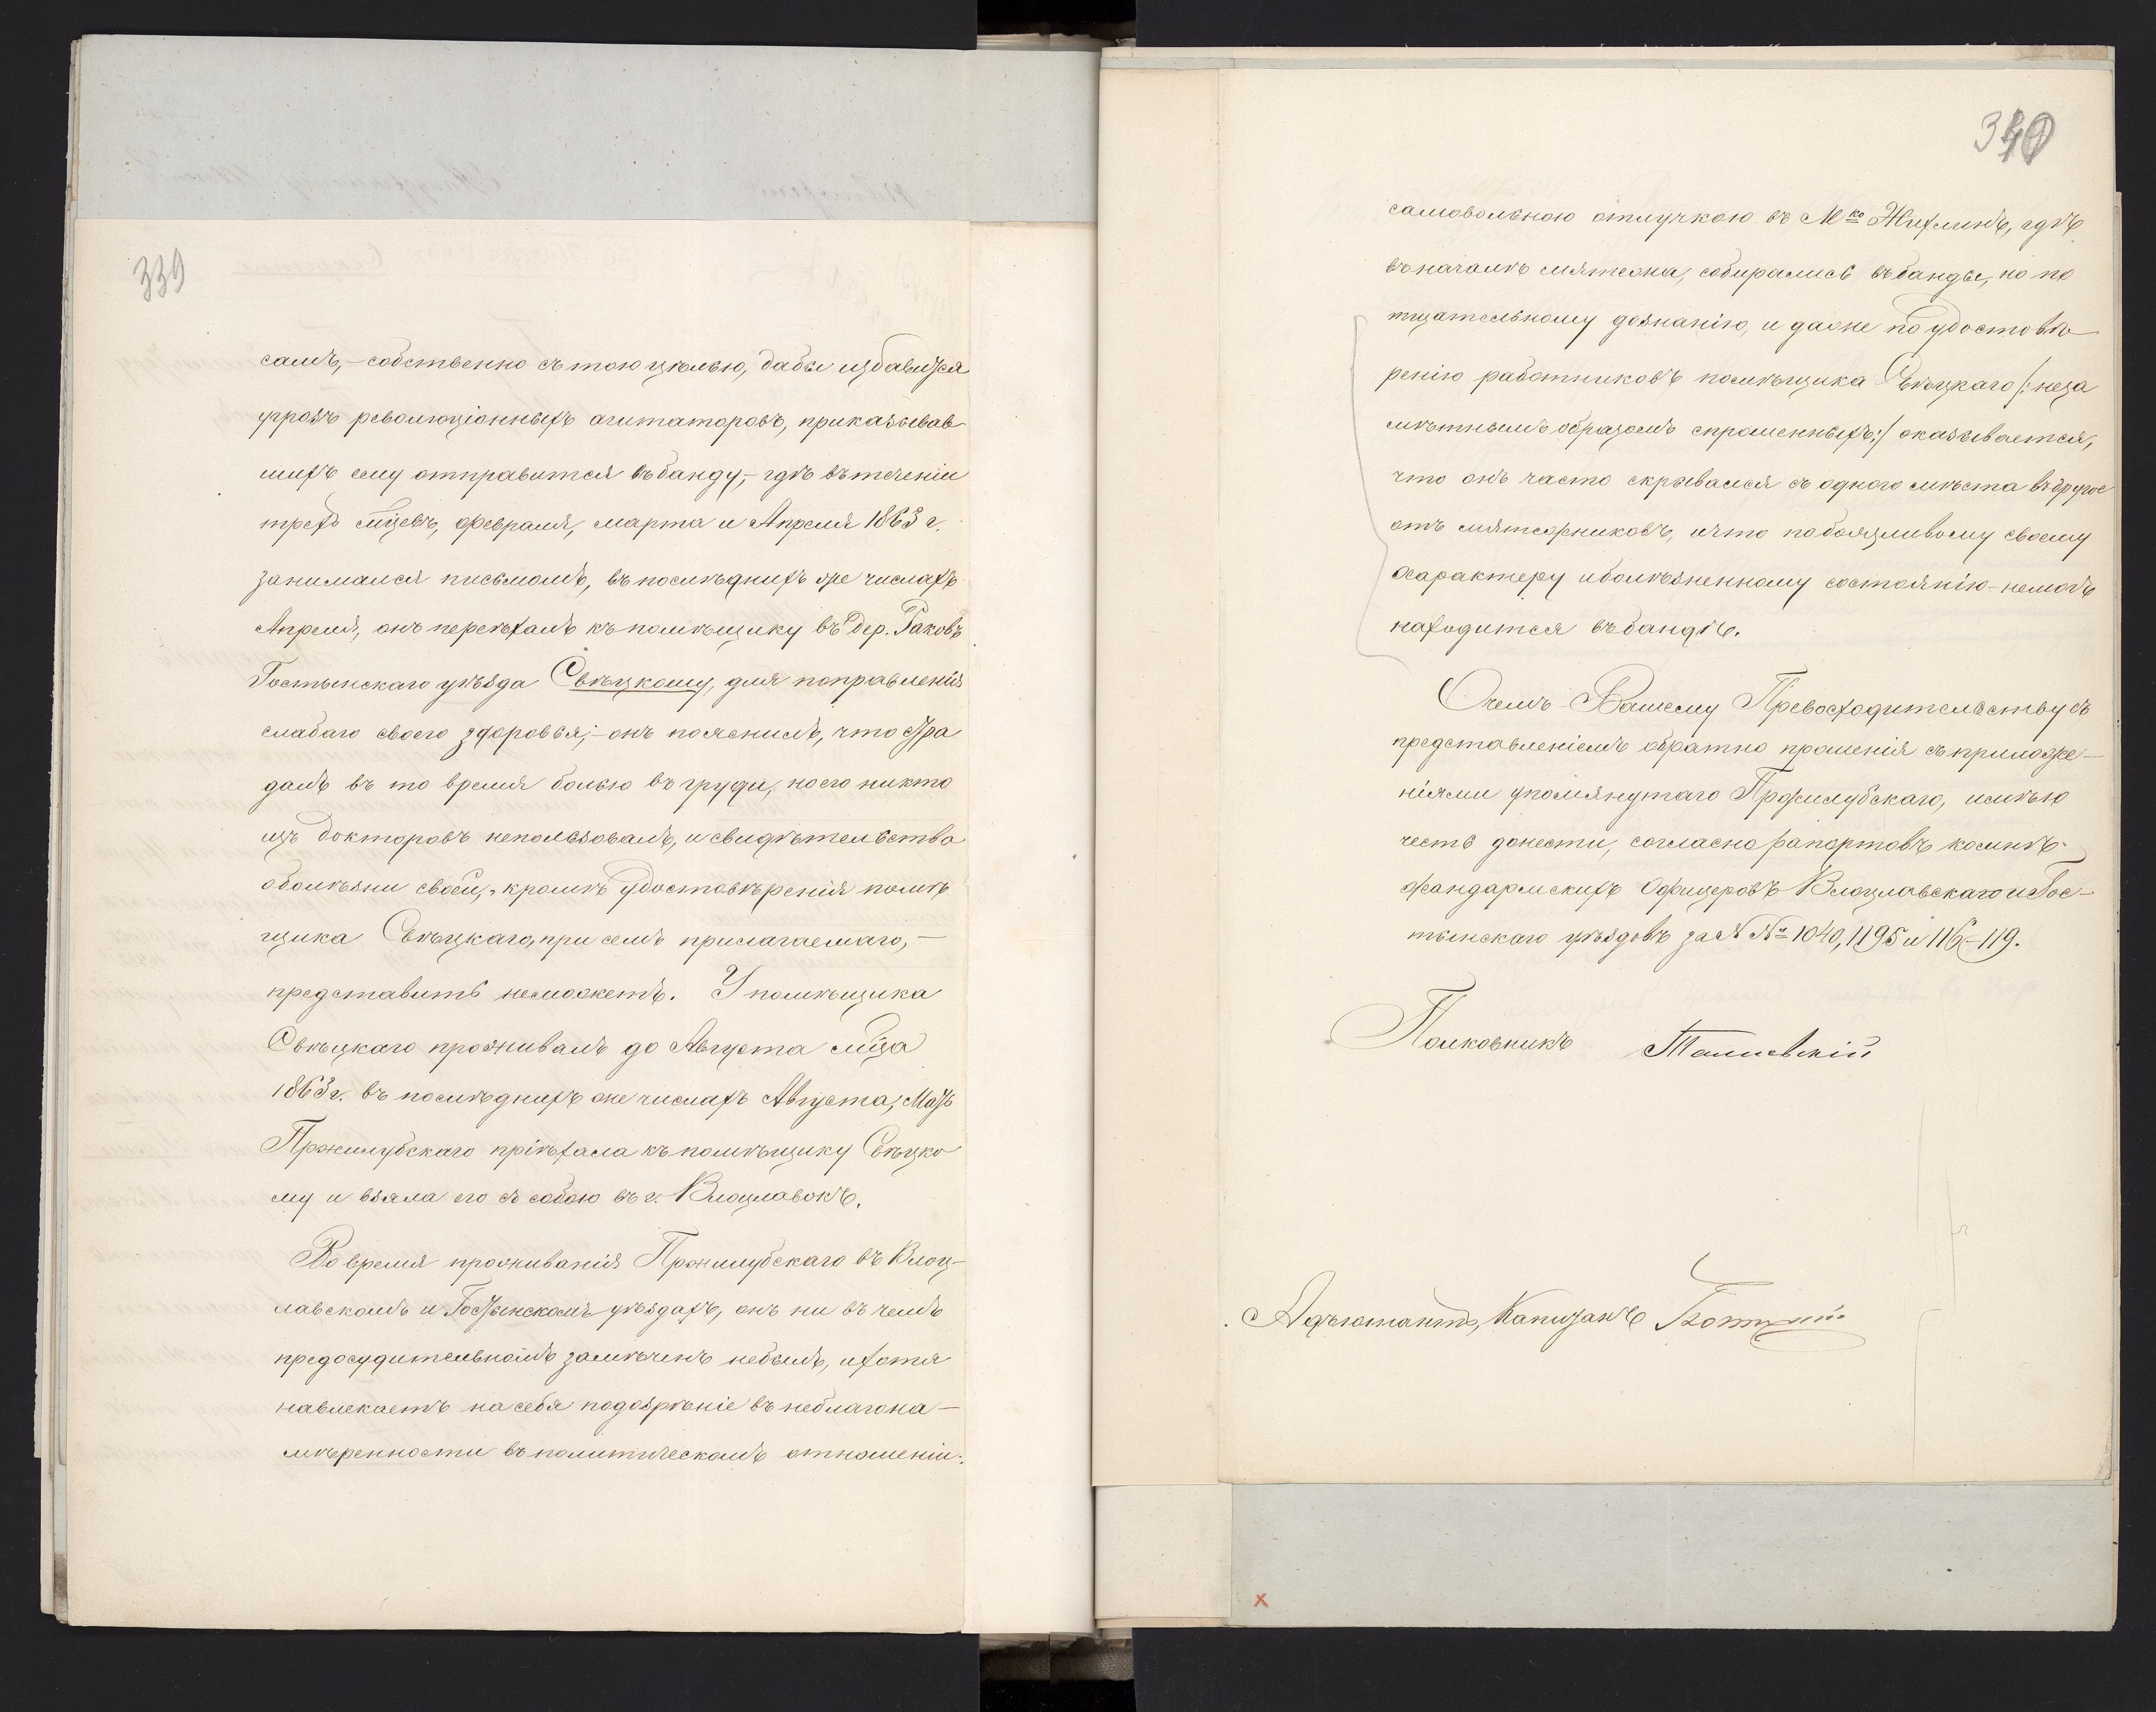 339
самъ, – собственно съ тою цѣлью, дабы избавиться
угрозъ революціонныхъ агитаторовъ, приказывав
шихъ ему отправится въ банду, – гдѣ въ теченіи
трехъ мцевъ, февраля, марта и Апреля 1863 г.
занимался письмомъ, въ послѣднихъ же числахъ
Апреля, онъ переѣхалъ къ помѣщику въ дер. Раковъ
Гостынскаго уѣзда Свѣцкому, для поправленія
слабаго своего здоровья; – онъ пояснилъ, что стра
далъ въ то время болью въ груди, но его никто
изъ докторовъ непользовалъ, и свидѣтельства
о болѣзни своей, кромѣ удостовѣренія помѣ
щика Свѣцкаго, при семъ прилагаемаго, –
представить неможетъ. У помѣщика
Свѣцкаго проживалъ до Августа мца
1863 г. въ послѣднихъ же числахъ Августа, Мать
Пржилубскаго пріѣхала къ помѣщику Свѣцко
му и взяла его съ собою въ г. Влоцлавокъ.
Во время проживанія Пржилубскаго въ Влоц-
лавскомъ и Гостынскомъ уѣздахъ, онъ ни въ чемъ
предосудительномъ замѣченъ небылъ, и хотя
навлекаетъ на себя подозрѣніе въ неблагона-
мѣренности въ политическомъ отношеніи:
340
самовольною отлучкою въ Мко Жихлинъ, гдѣ
въ началѣ мятежа, собирались въ банды, но по
тщательному дознанію, и даже по удостовѣ-
ренію работниковъ помѣщика Свѣцкаго /: неза
мѣтнымъ образомъ спрошенныхъ :/ оказывается,
что онъ часто скрывался съ одного мѣста въ другое
отъ мятежниковъ, и что по боязливому своему
характеру и болѣзненному состоянію – немогъ
находится въ бандѣ.
О чемъ Вашему Превосходительству съ
представленіемъ обратно прошенія съ приложе-
ніями упомянутаго Пржилубскаго, имѣю
честь донести, согласно рапортовъ ко мнѣ
жандармскихъ Офицеровъ Влоцлавскаго и Гос-
тынскаго уѣздовъ за № № 1040, 1195 и 116–119.
Полковникъ
Адъютантъ, Капитанъ
x